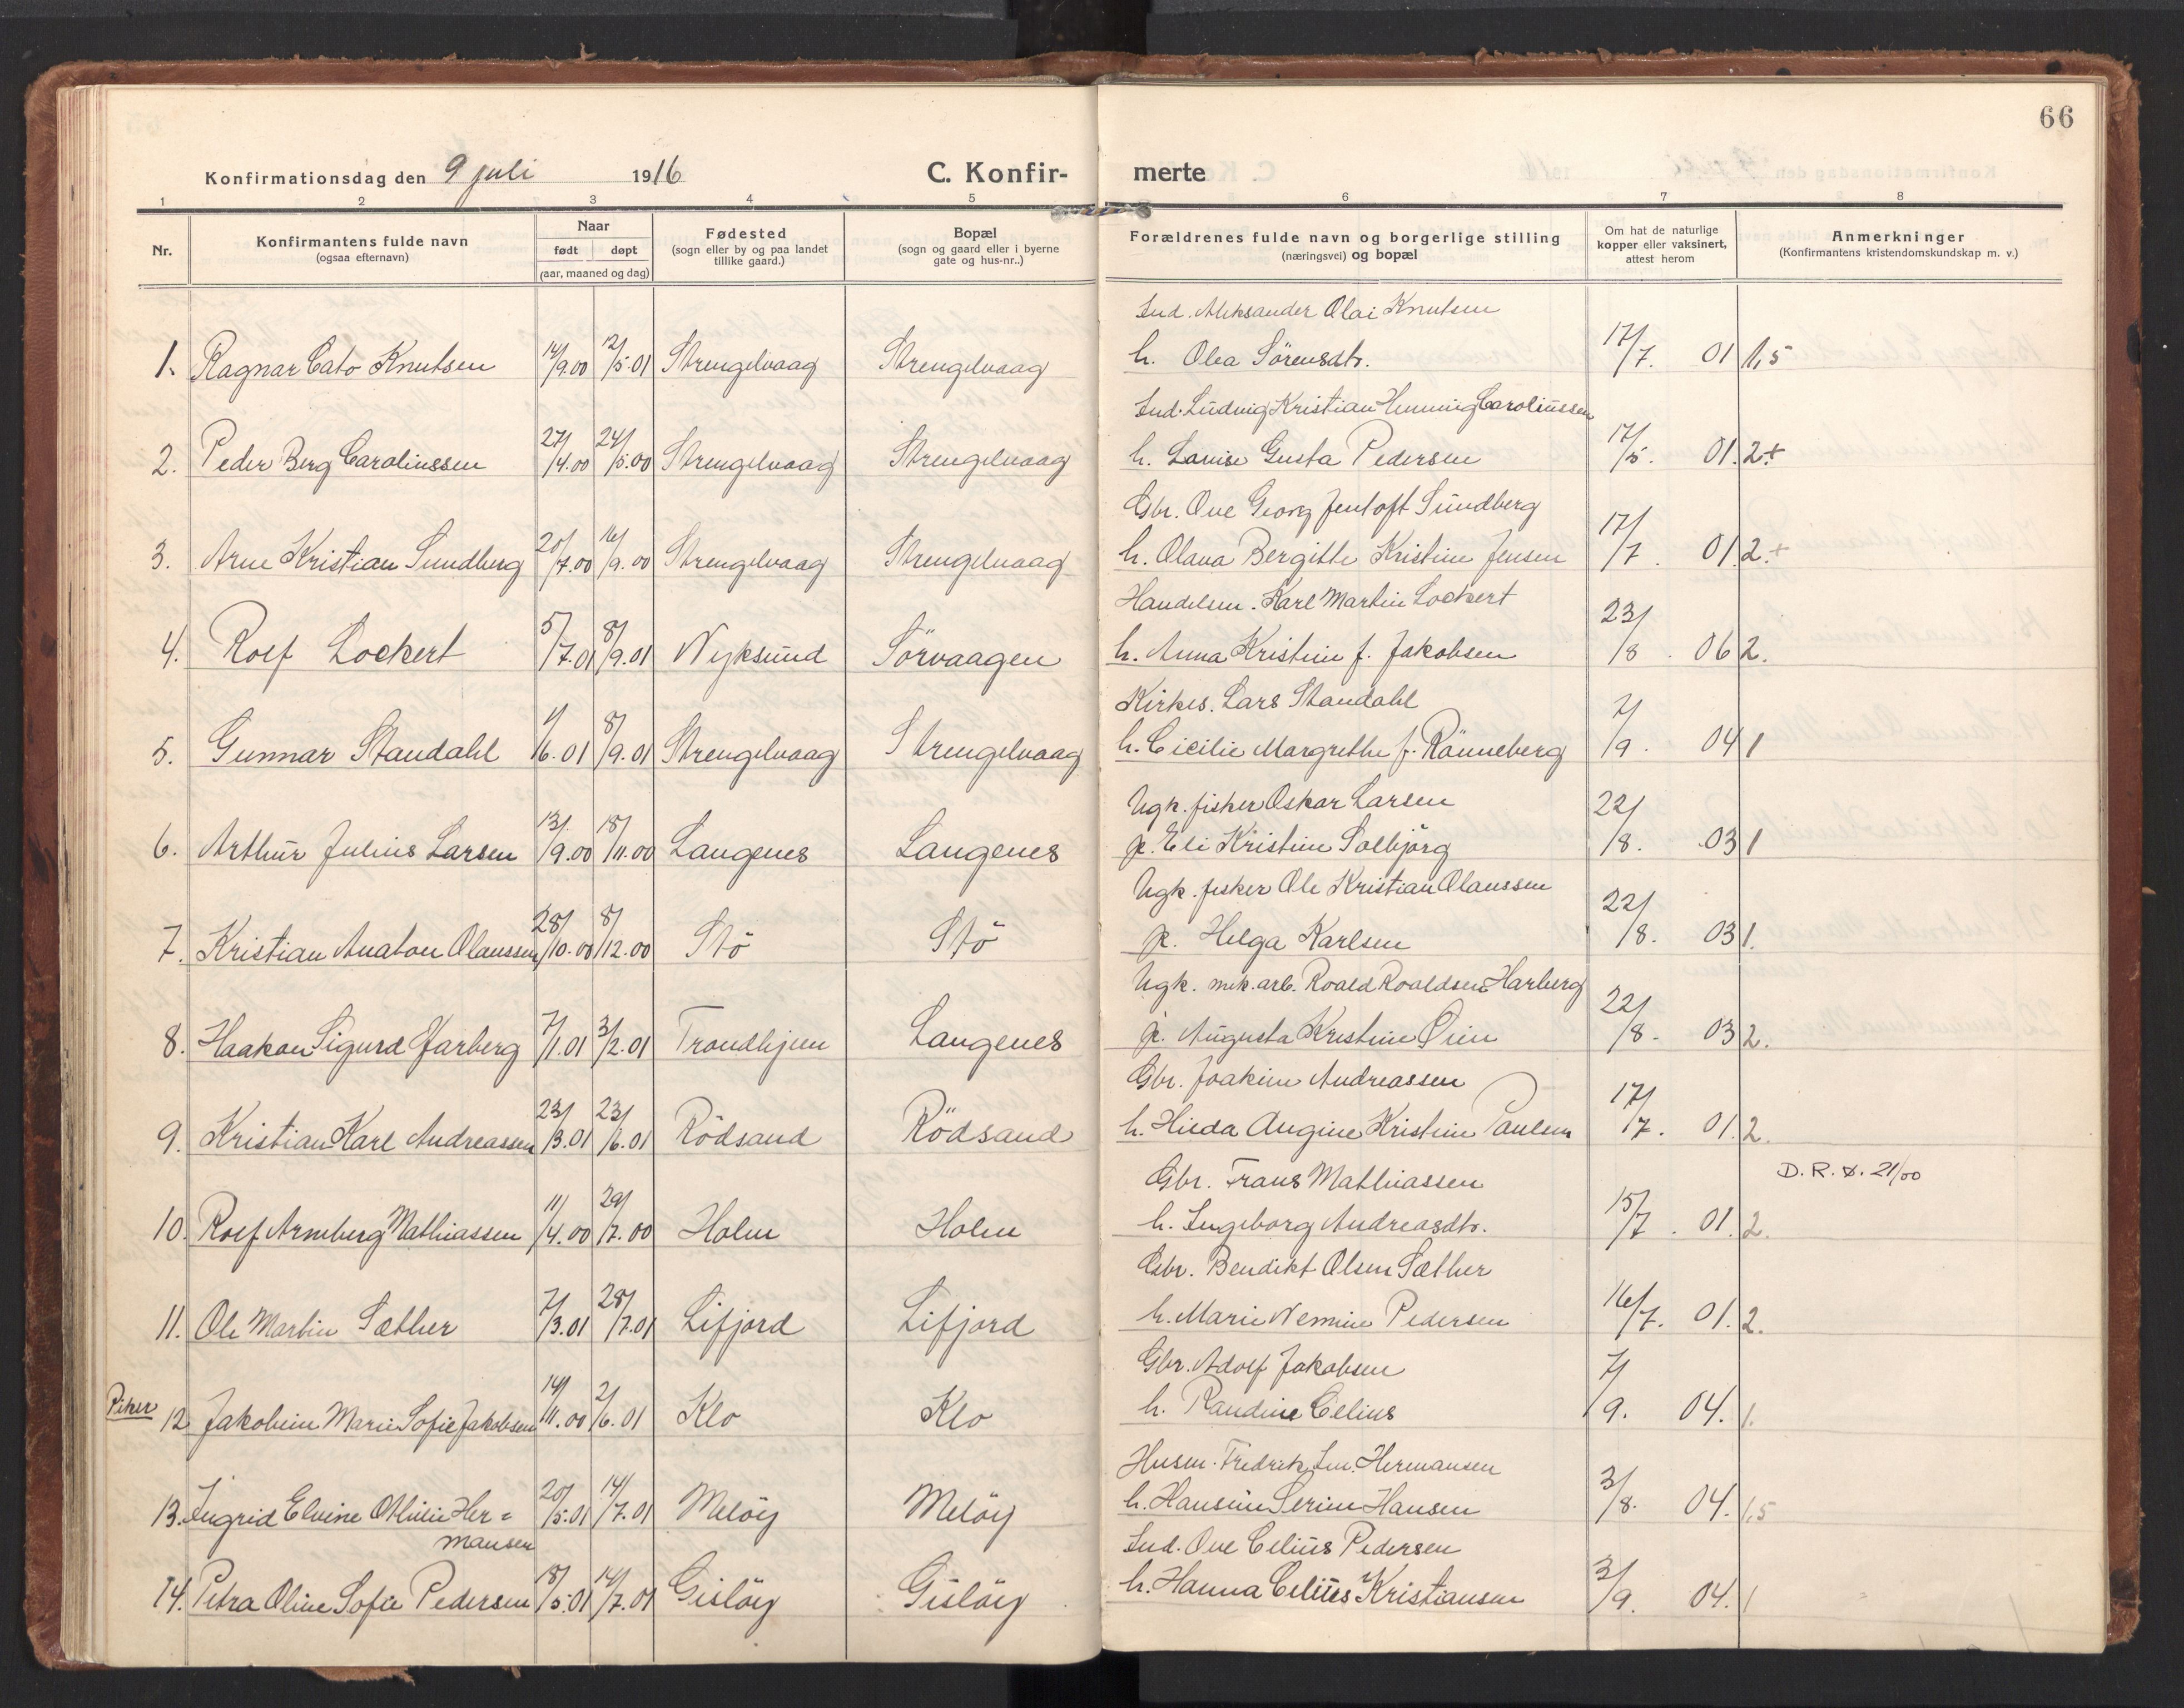 66
Konfirmationsdag den 9 juli 1916 C. Konfir- merte
1 2 3 4 5 6 7 8
Nr. Konfirmantens fulde navn (ogsaa efternavn) Naar født døpt (aar, maaned og dag) Fødested (sogn eller by og paa landet tillike gaard.) Bopæl (sogn og gaard eller i byerne gate og hus-nr..) Forældrenes fulde navn og borgerlige stilling (næringsvei) og bopæl Om hat de naturlige kopper eller vaksinert, attest herom Anmerkninger (Konfirmantens kristendomskundskap m. v.)
Ind. Aleksander Olai Knutsen
1. Ragnar Cato Knutsen 14/9.00 12/5.01 Strengelvaag Strengelvaag h. Olea Sörensdtr. 17/7. 01 1,5
Ind. Ludvig Kristian Henning Caroliussen
2. Peder Berg Caroliussen 27/4.00 24/5.00 Strengelvaag Strengelvaag h. Lovise Gusta Pedersen 17/5. 01. 2+
Gbr. Ove Georg Jentoft Sundberg
3. Arne Kristian Sundberg 20/7.00 16/9.00 Strengelvaag Strengelvaag h. Olava Bergitte Kristine Jensen 17/7. 01. 2+
Handelsm. Karl Martin Lockert
4. Rolf Lockert 5/7.01 8/9.01 Nyksund Sörvaagen h. Anna Kristine f. Jakobsen 23/8. 06 2.
Kirkes. Lars Standahl
5. Gunnar Standahl 1/6.01 8/9.01 Strengelvaag Strengelvaag h. Cicilie Margrethe f. Rönneberg 7/9. 04 1
Ugk. fisker Oskar Larsen
6. Arthur Julius Larsen 13/9.00 18/11.00 Langenes Langenes p. Eli Kristine Solbjörg 22/8. 03 1
Ugk. fisker Ole Kristian Olaussen
7. Kristian Anaton Olaussen 28/10.00 8/12.00 Stö Stö p. Helga Karlsen 22/8. 03 1.
Ugk. mek. arb. Roald Roaldsen Harberg
8. Haakon Sigurd Harberg 7/1.01 3/2.01 Trondhjem Langenes p. Augusta Kristine Øien 22/8. 03 2.
Gbr. Joakim Andreassen
9. Kristian Karl Andreassen 23/3.01 23/6.01 Rödsand Rödsand h. Hilda Angine Kristine Paulsen 17/7. 01. 2.
Gbr. Frans Mathiassen D. R. &. 21/00
10. Rolf Arneberg Mathiassen 11/4.00 29/7.00 Holm Holm h. Ingeborg Andreasdtr. 15/7. 01. 2.
Gbr. Bendikt Olsen Sæther
11. Ole Martin Sæther 7/3.01 28/7.01 Lifjord Lifjord h. Marie Nemine Pedersen 16/7. 01. 2.
Gbr. Adolf Jakobsen
Piker 12 Jakobine Marie Sofie Jakobsen 14/11.00 2/6.01 Klo Klo h. Randine Celius 7/9. 04. 1.
Husm. Fredrik Hermansen
13. Ingrid Elvine Otilie Her=mansen 20/5.01 14/7.01 Melöy Melöy h. Hansine Serine Hansen 3/8. 04. 1,5
Ind. Ove Celius Pedersen
14. Petra Oline Sofie Pedersen 18/5.01 14/7.01 Gislöy Gislöy h. Hanna Celius Kristiansen 3/9. 04. 1